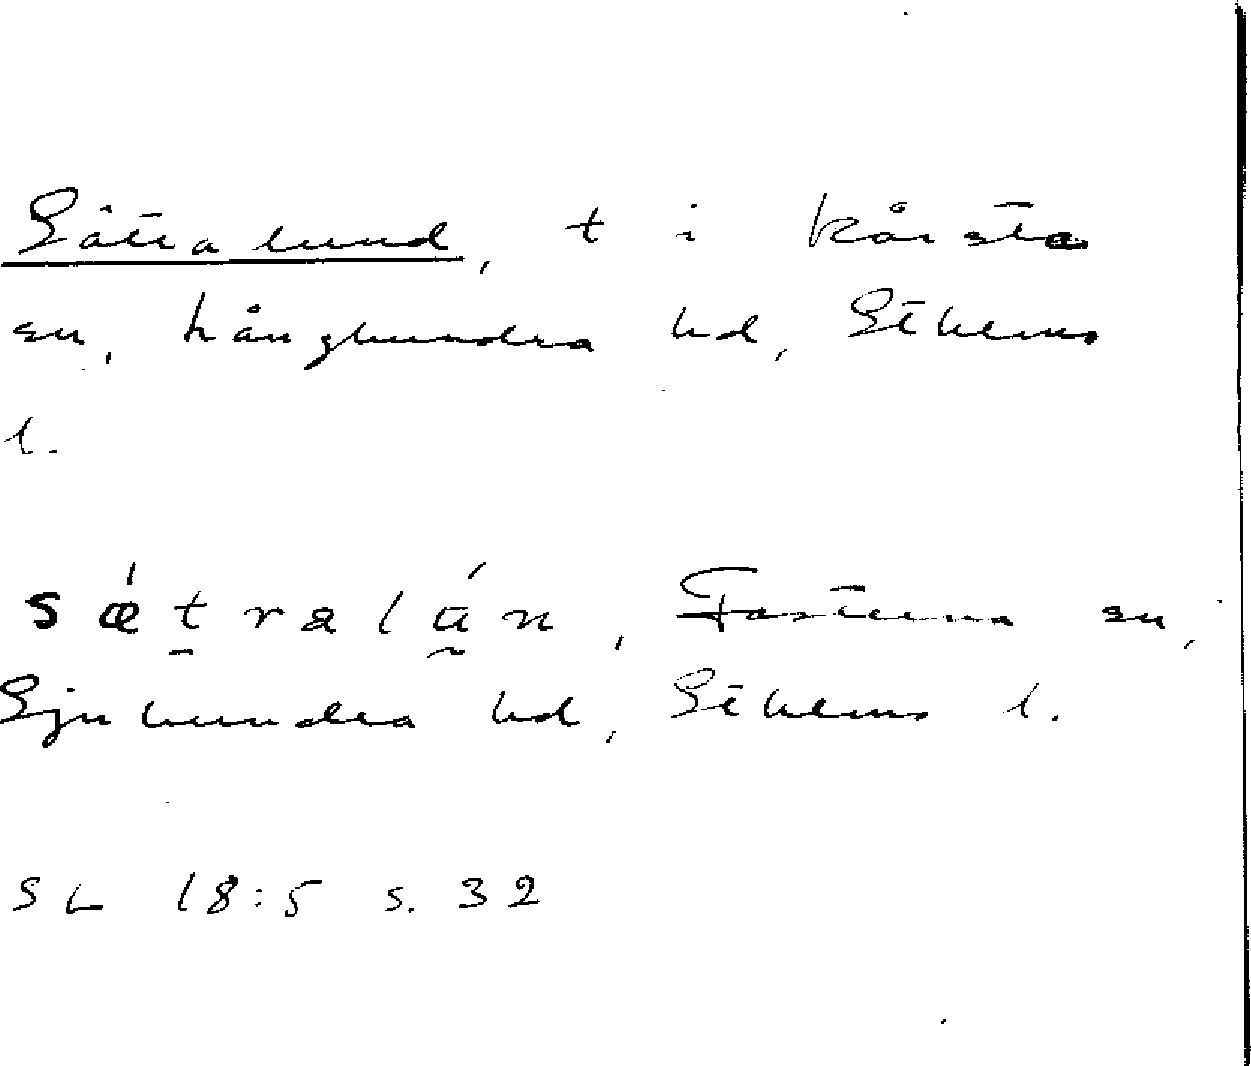 Sätralund, t i Kårsta
sn, Långhundra hd, Sthlms
l.
sǽtralún, Fasterna sn,
Sjuhundra hd, Sthlms l.
SL 18:5 s. 32